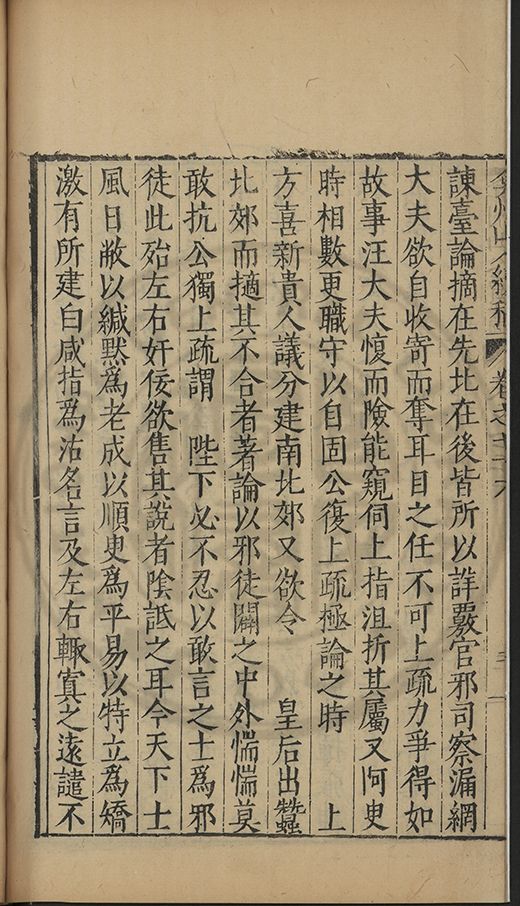 弇州山人續稿 卷之七十六
諫臺論摘在先比在後皆所以詳覈官邪司察漏網
大夫欲自收寄而奪耳目之任不可上疏力爭得如
故事汪大夫愎而險能窺伺上指沮折其屬又阿吏
時相數更職守以自固公復上疏極論之時 上
方喜新貴人議分建南北郊又欲令 皇后出蠶
北郊而擿其不合者著論以邪徒闢之中外惴惴莫
敢抗公獨上疏謂 陛下必不忍以敢言之士為邪
徒此殆左右奸佞欲售其說者陰詆之耳今天下士
風日敝以緘默為老成以順更為平易以特立為矯
激有所建白咸指為沽名言及左右輒寘之遠譴不